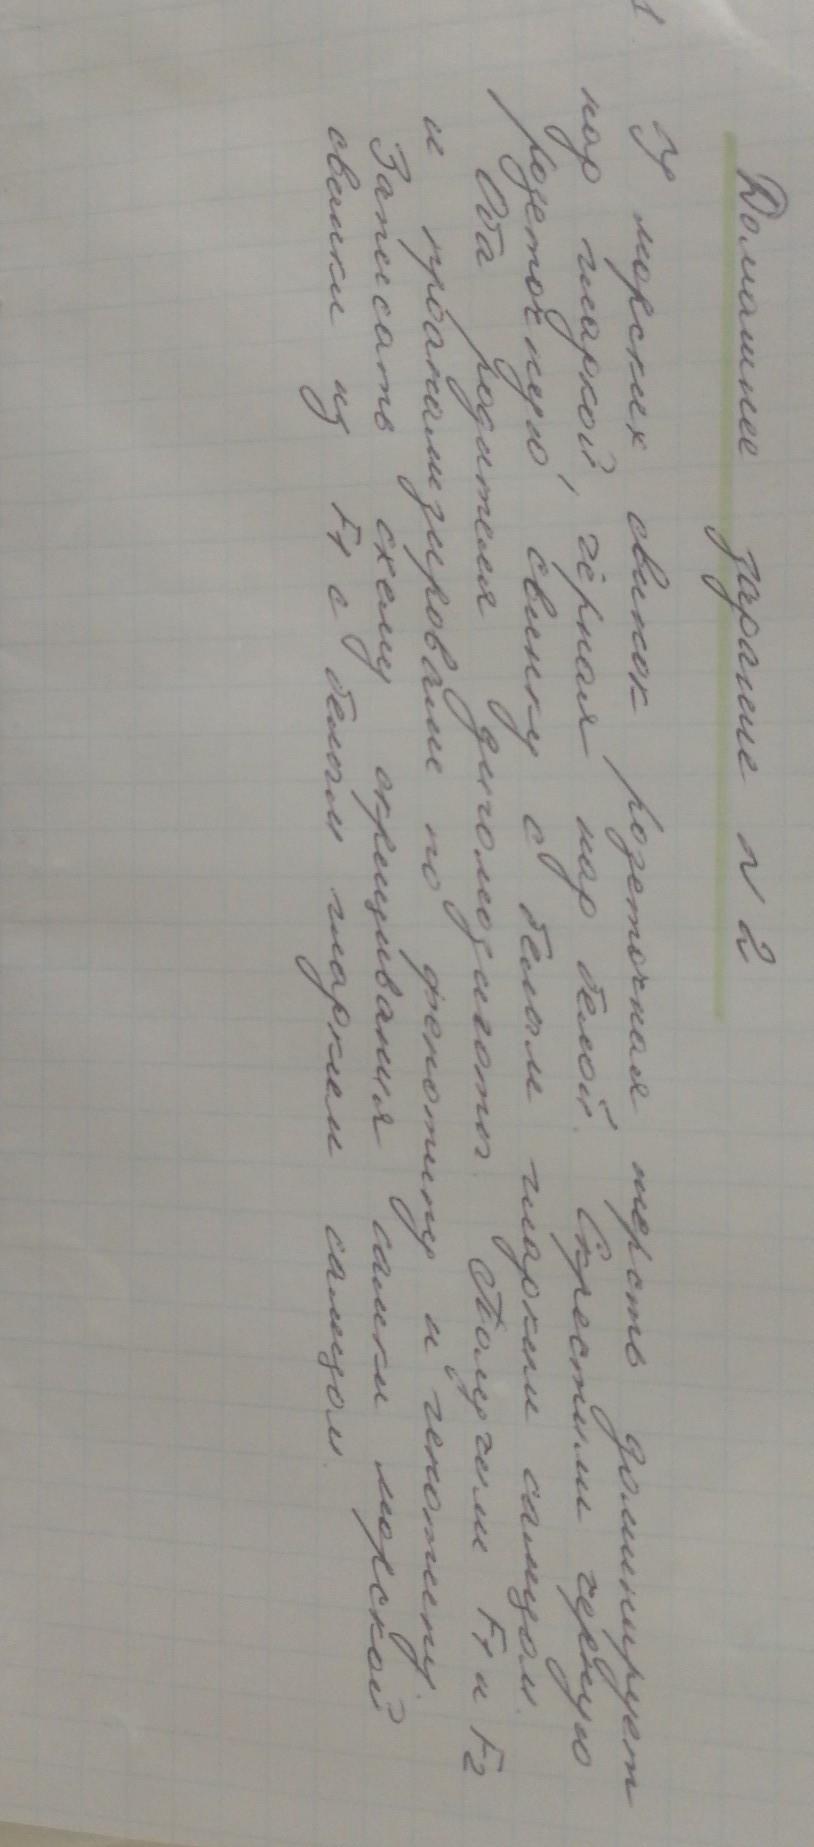 Домашнее задание № 2
1.
У морских свинок розеточная шерсть доминирует
над гладкой, чёрная над белой. Скрестили черную
розеточную свинку с белым гладким самцом.
Оба родителя дигомозиготы. Получили F1 и F2
и проанализировали по фенотипу и генотипу.
Записать схему скрещивания самки морской
свинки из F1 с белым гладким самцом.